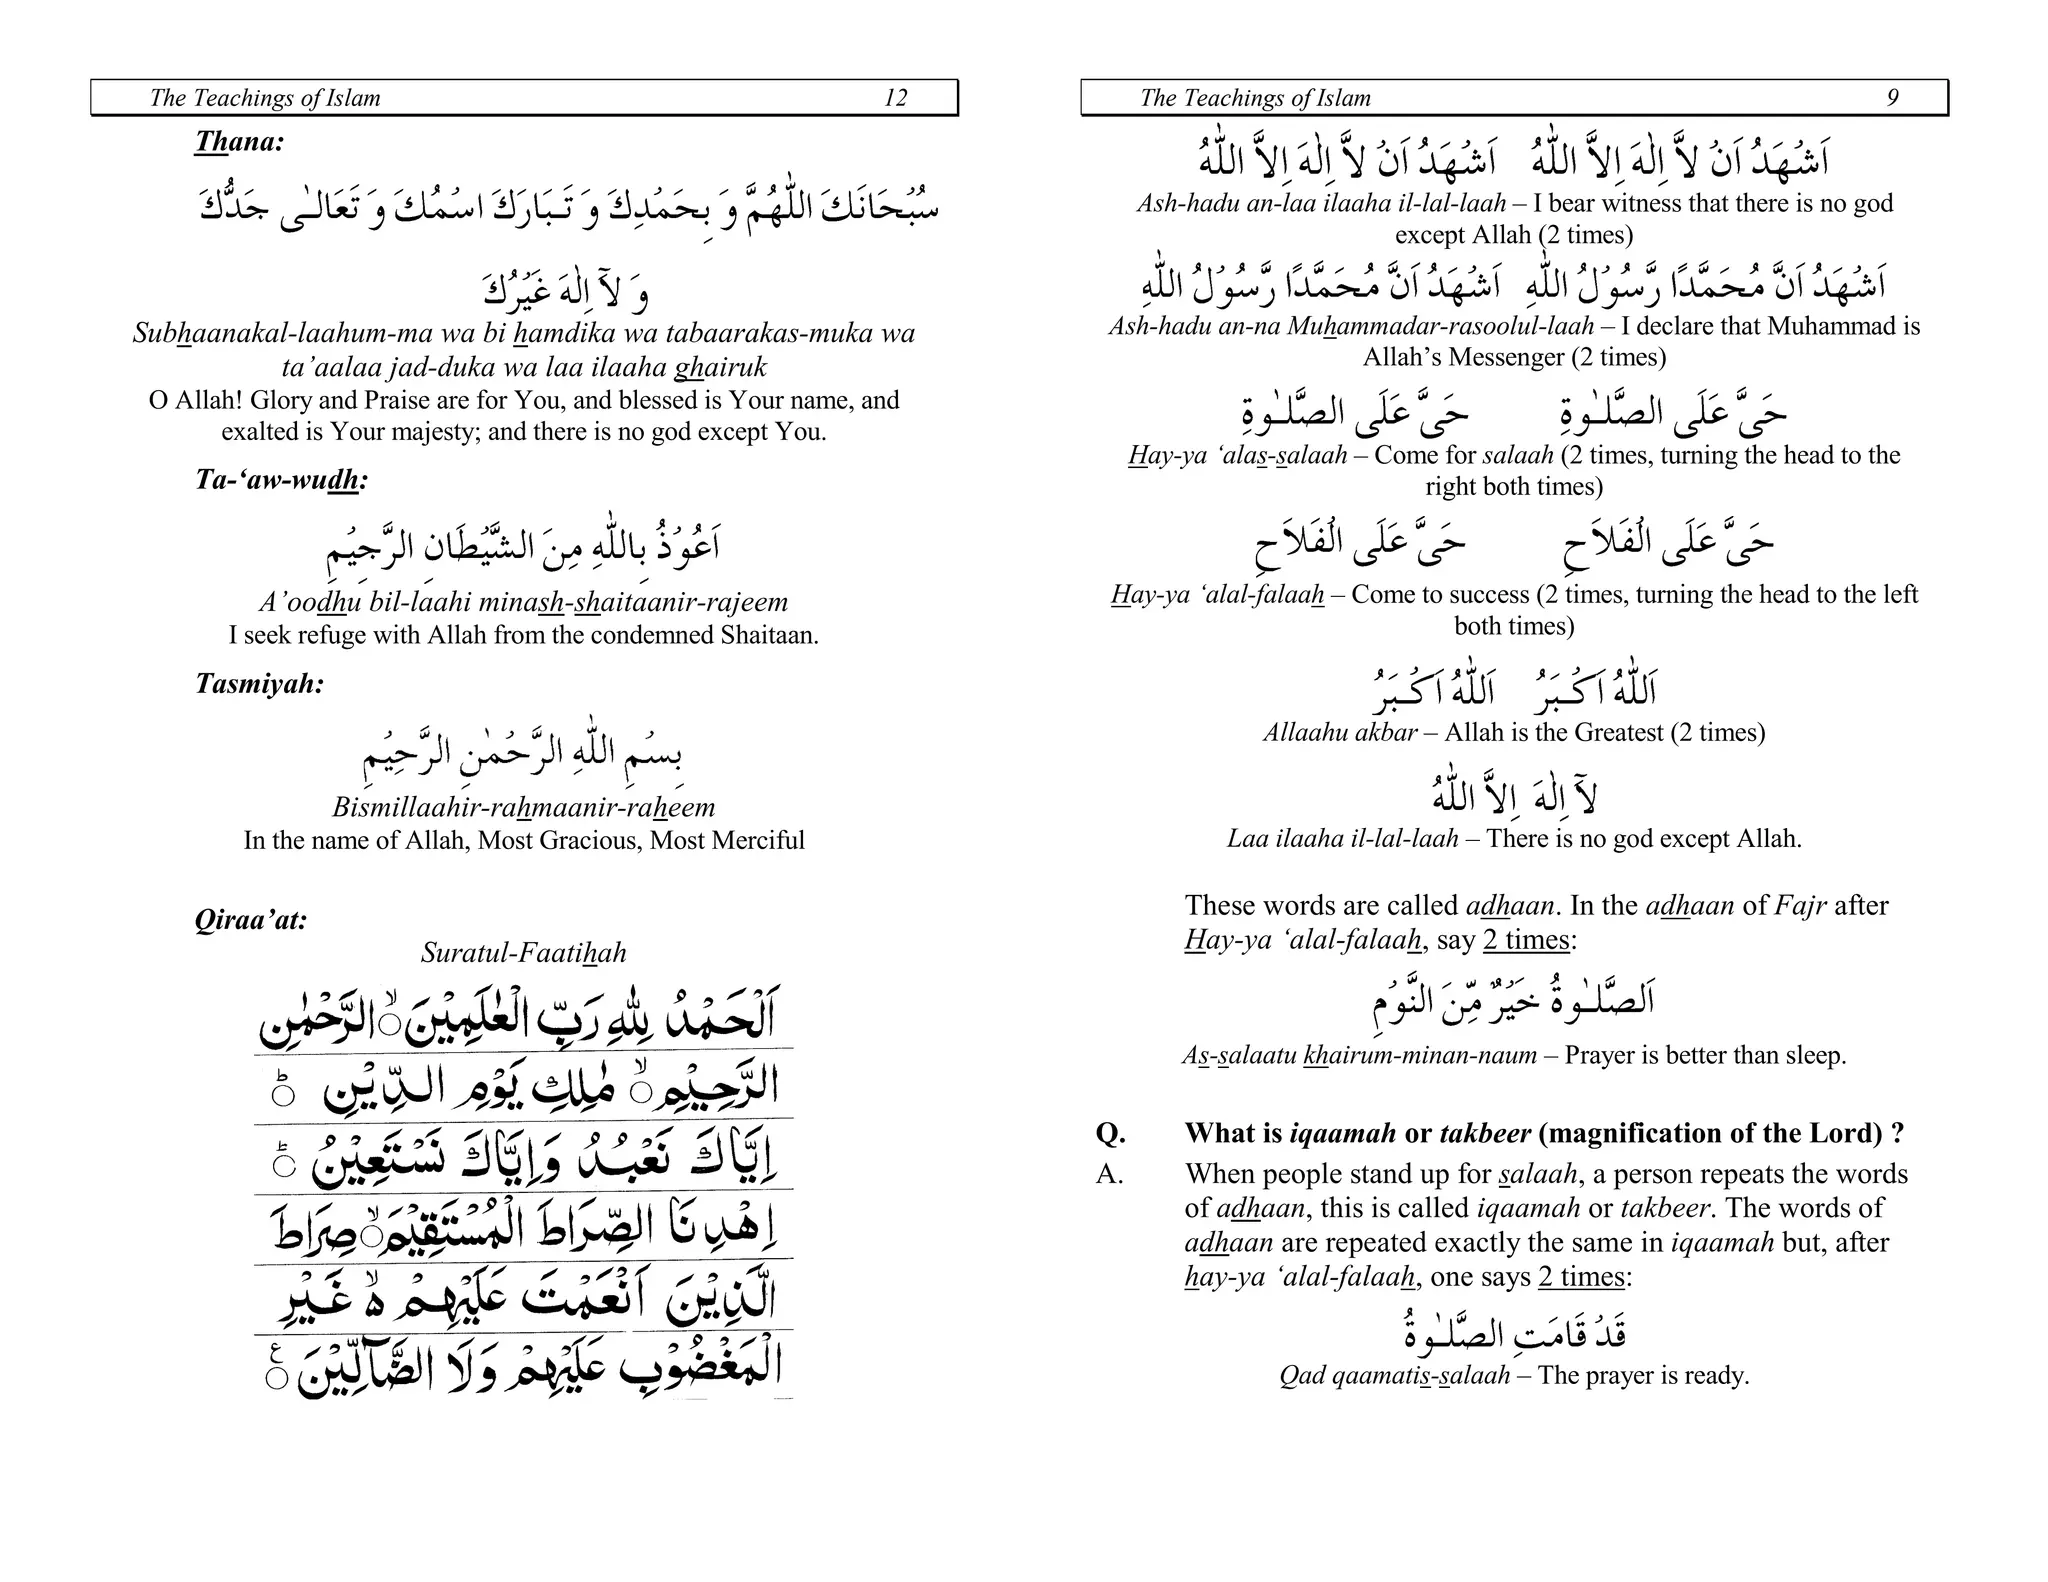 The Teachings of Islam 12
Thana:
سُبْحَانَكَ اللّٰهُمَّ وَ بِحَمْدِكَ وَ تَبَارَكَ اسْمُكَ وَ تَعَالـٰى جَدُّكَ
وَ لَآ اِلٰهَ غَيْرُكَ
Subhaanakal-laahum-ma wa bi hamdika wa tabaarakas-muka wa
ta’aalaa jad-duka wa laa ilaaha ghairuk
O Allah! Glory and Praise are for You, and blessed is Your name, and
exalted is Your majesty; and there is no god except You.
Ta-‘aw-wudh:
اَعُوْذُ بِاللّٰهِ مِنَ الشَّيْطَانِ الرَّجِيْمِ
A’oodhu bil-laahi minash-shaitaanir-rajeem
I seek refuge with Allah from the condemned Shaitaan.
Tasmiyah:
بِسْمِ اللّٰهِ الرَّحْمٰنِ الرَّحِيْمِ
Bismillaahir-rahmaanir-raheem
In the name of Allah, Most Gracious, Most Merciful
Qiraa’at:
Suratul-Faatihah
اَلْحَمْدُ لِلّٰهِ رَبِّ الْعٰلَمِيْنَ ۙ الرَّحْمٰنِ
الرَّحِيْمِ ۙ مٰلِكِ يَوْمِ الدِّيْنِ ؕ
اِيَّاكَ نَعْبُدُ وَاِيَّاكَ نَسْتَعِيْنُ ؕ
اِهْدِنَا الصِّرَاطَ الْمُسْتَقِيْمَ ۙ صِرَاطَ
الَّذِيْنَ اَنْعَمْتَ عَلَيْهِمْ ۙ غَيْرِ
الْمَغْضُوْبِ عَلَيْهِمْ وَلَا الضَّآلِّيْنَ ع
The Teachings of Islam 9
اَشْهَدُ اَنْ لَّا اِلٰهَ اِلَّا اللّٰهُ اَشْهَدُ اَنْ لَّا اِلٰهَ اِلَّا اللّٰهُ
Ash-hadu an-laa ilaaha il-lal-laah – I bear witness that there is no god
except Allah (2 times)
اَشْهَدُ اَنَّ مُحَمَّدًا رَّسُوْلُ اللّٰهِ اَشْهَدُ اَنَّ مُحَمَّدًا رَّسُوْلُ اللّٰهِ
Ash-hadu an-na Muhammadar-rasoolul-laah – I declare that Muhammad is
Allah’s Messenger (2 times)
حَىَّ عَلَى الصَّلـٰوةِ حَىَّ عَلَى الصَّلـٰوةِ
Hay-ya ‘alas-salaah – Come for salaah (2 times, turning the head to the
right both times)
حَىَّ عَلَى الْفَلَاحِ حَىَّ عَلَى الْفَلَاحِ
Hay-ya ‘alal-falaah – Come to success (2 times, turning the head to the left
both times)
اَللّٰهُ اَكْبَرُ اَللّٰهُ اَكْبَرُ
Allaahu akbar – Allah is the Greatest (2 times)
لَآ اِلٰهَ اِلَّا اللّٰهُ
Laa ilaaha il-lal-laah – There is no god except Allah.
These words are called adhaan. In the adhaan of Fajr after
Hay-ya ‘alal-falaah, say 2 times:
اَلصَّلـٰوةُ خَيْرٌ مِّنَ النَّوْمِ
As-salaatu khairum-minan-naum – Prayer is better than sleep.
Q. What is iqaamah or takbeer (magnification of the Lord) ?
A. When people stand up for salaah, a person repeats the words
of adhaan, this is called iqaamah or takbeer. The words of
adhaan are repeated exactly the same in iqaamah but, after
hay-ya ‘alal-falaah, one says 2 times:
قَدْ قَامَتِ الصَّلـٰوةُ
Qad qaamatis-salaah – The prayer is ready.